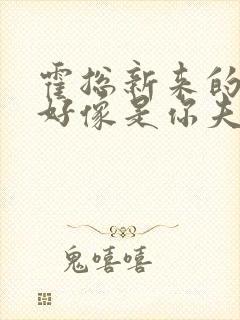 霍总新来的
好像是你夫
鬼嘻嘻